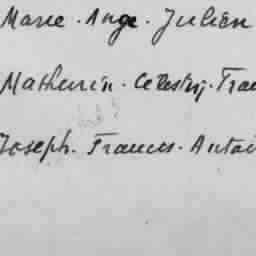 Marie. Ange. Julien
Mathurin. Celestin. Fran
Joseph. Francis. Antoi